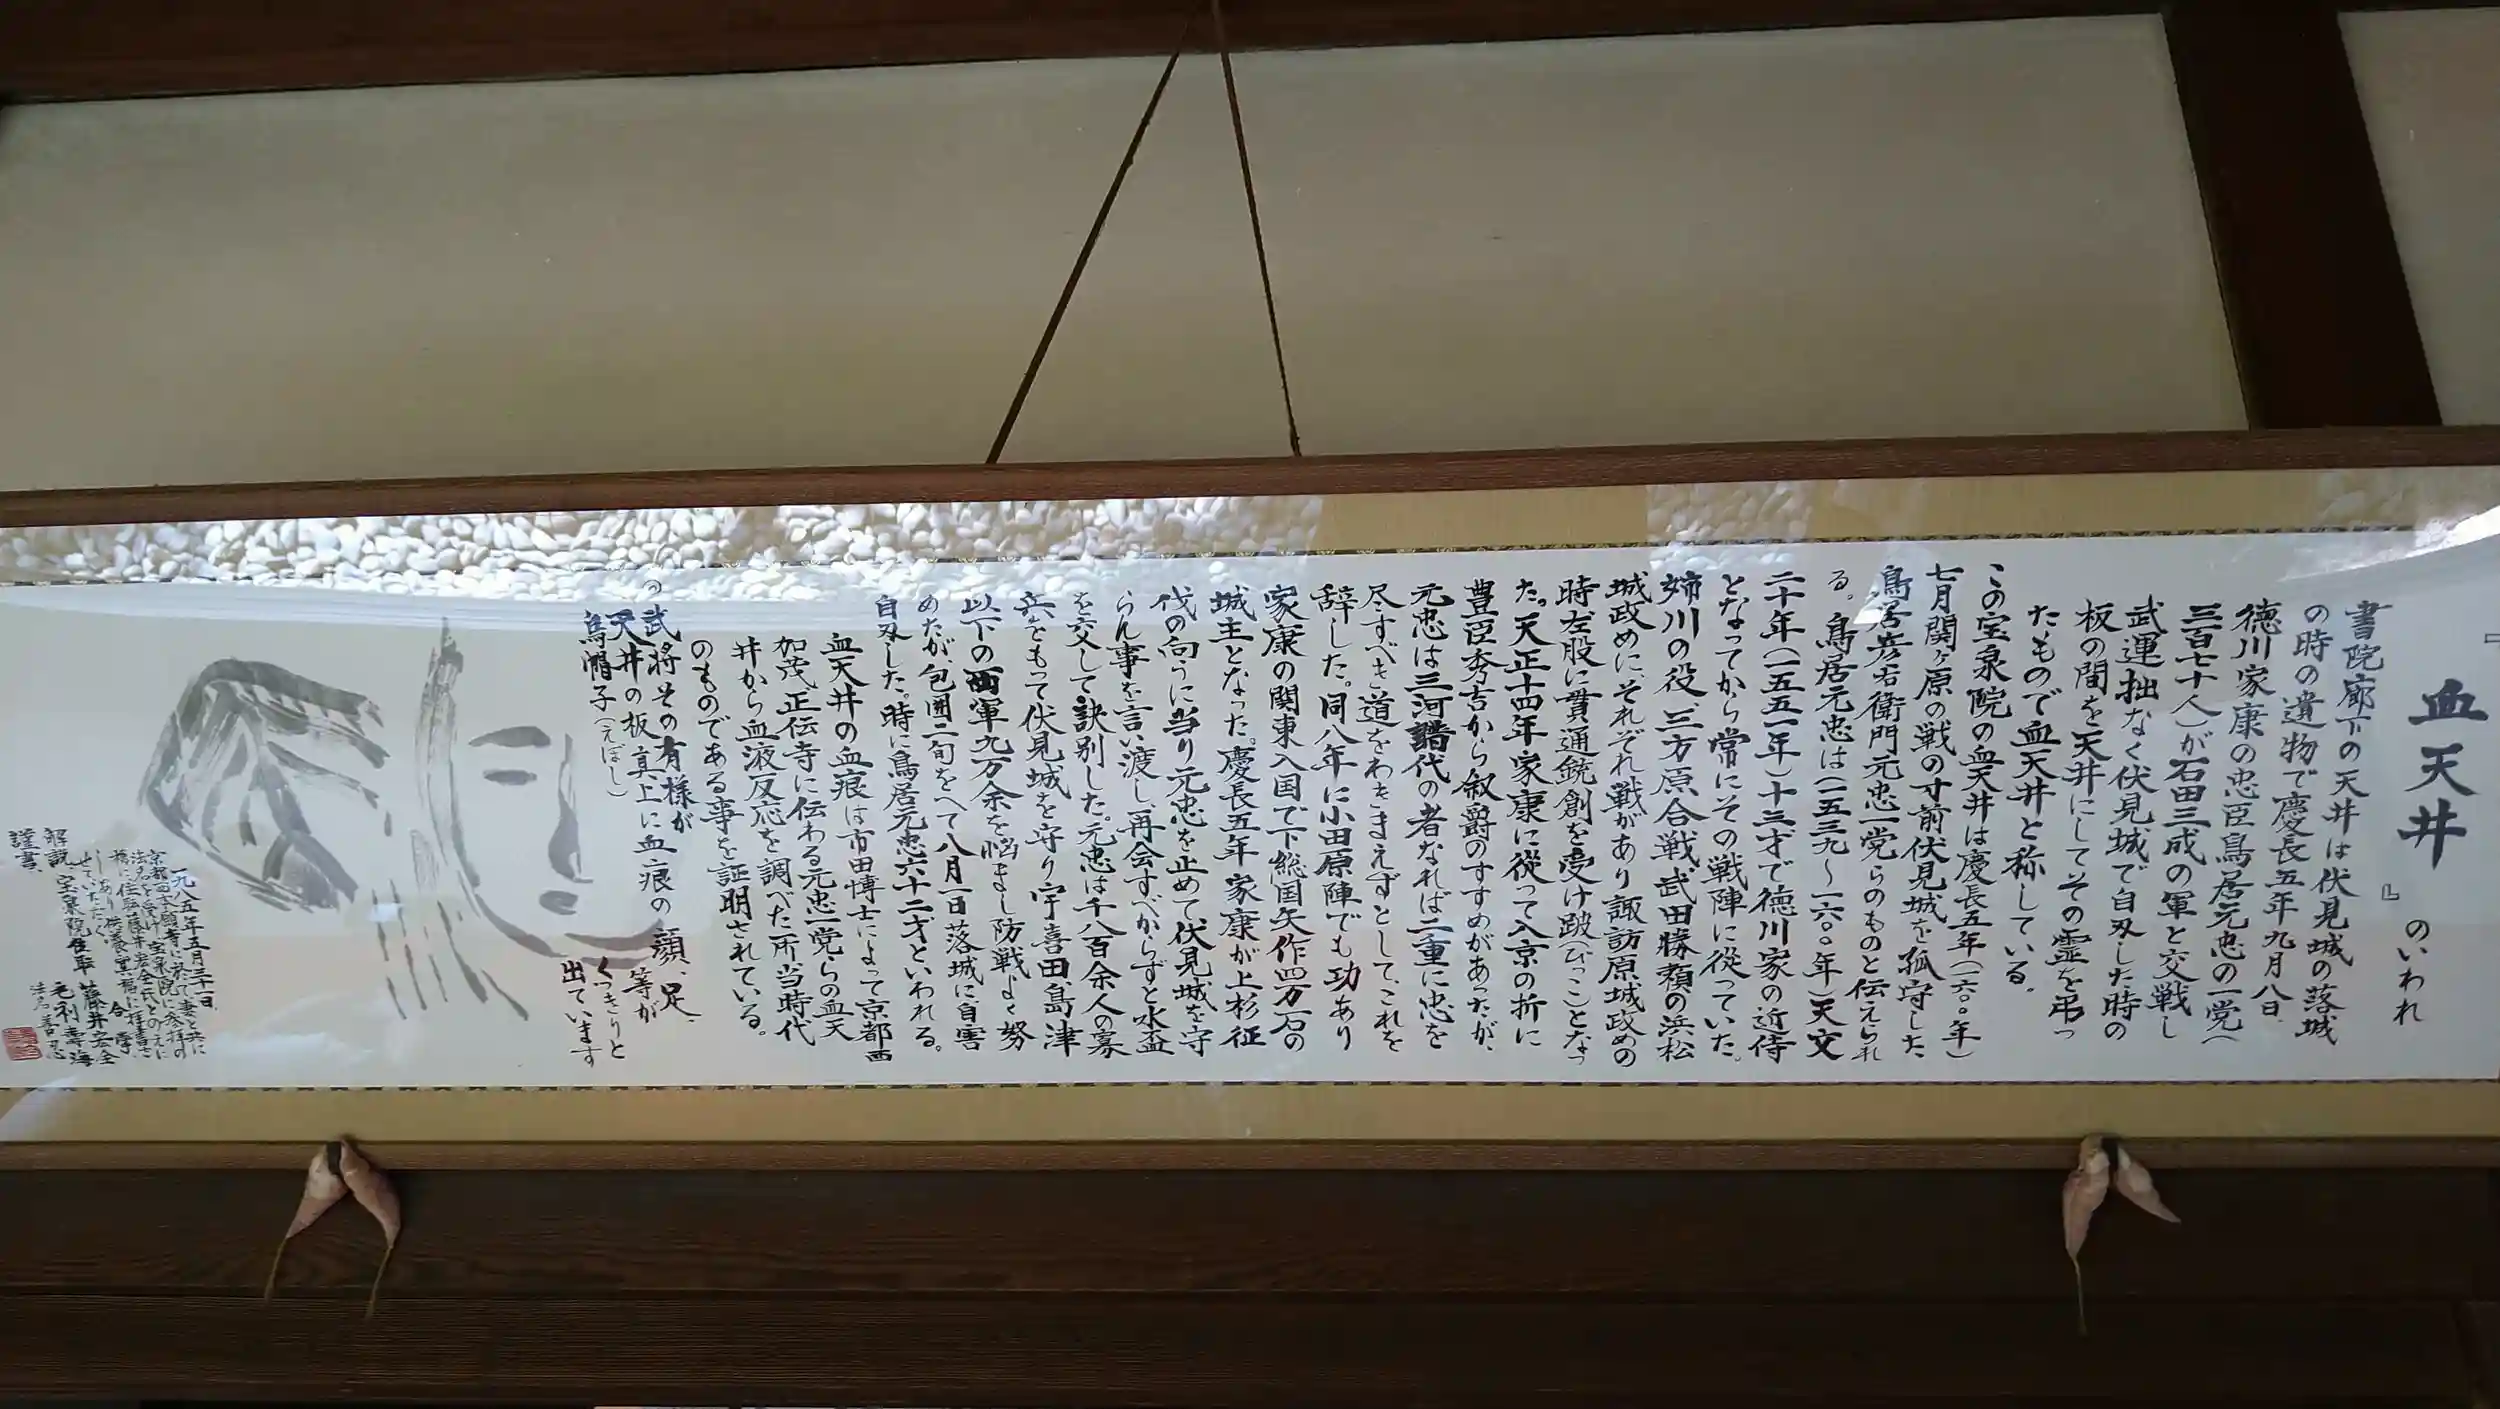 『血天井』のいわれ
書院廊下の天井は伏見城の落城
の時の遺物で慶長五年九月八日、
徳川家康の忠臣鳥居元忠の一党(
三百七十人)が石田三成の軍と交戦し
武運拙なく伏見城で自刃した時の
板の間を天井にしてその霊を弔っ
たもので血天井と称している。
この宝泉院の血天井は慶長五年(一六〇〇年)
七月関ヶ原の戦の寸前伏見城を孤守した
鳥居彦右衛門元忠一党らのものと伝えられ
る。鳥居元忠は(一五三九〜一六〇〇年)天文
二十年(一五五一年)十三才で徳川家の近侍
となってから常にその戦陣に従っていた。
姉川の役、三方原合戦、武田勝頼の浜松
城攻めに、それぞれ戦があり諏訪原城攻めの
時左股に貫通銃創を受け跛(びっこ)となっ
た。天正十四年家康に従って入京の折に
豊臣秀吉から叙爵のすすめがあったが、
元忠は三河譜代の者なれば二重に忠を
尽すべき道をわきまえずとして、これを
辞した。同八年に小田原陣でも功あり
家康の関東入国で下総国矢作四万石の
城主となった。慶長五年家康が上杉征
伐の向うに当り元忠を止めて伏見城を守
らん事を言い渡し、再会すべからずと水盃
を交して訣別した。元忠は千八百余人の寡
兵をもって伏見城を守り宇喜田、島津
以下の西軍九万余を悩まし防戦よく努
めたが、包囲二旬をへて八月一日落城に自害
自刃した。時に鳥居元忠六十二才といわれる。
血天井の血痕は市田博士によって京都西
加茂、正伝寺に伝わる元忠一党らの血天
井から血液反応を調べた所、当時代
のものである事を証明されている。
武将その有様が
天井の板真上に血痕の顔、足、
烏帽子(えぼし)等が
くっきりと
出ています
一九八五年五月三十一日、
京都西本願寺に於て、妻と共に
法名を受け、宝泉院に参拝の
解説、宝泉院住職 藤井宏全
謹書、毛利壽海